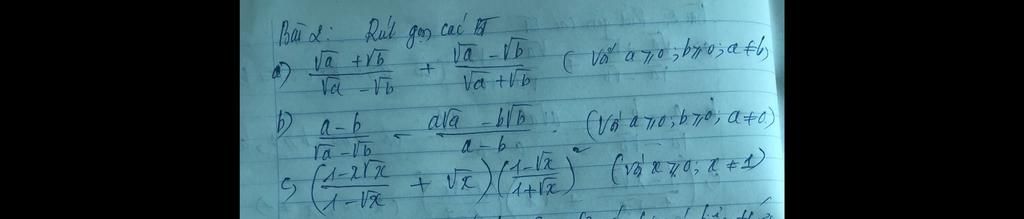 Bài 2: Rút gọn các BT
a) (√a + √b)/(√a - √b) + (√a - √b)/(√a + √b) (với a ≥ 0; b ≥ 0; a ≠ b)
b) (a - b)/(√a - √b) - (a√a - b√b)/(a - b). (với a ≥ 0; b ≥ 0; a ≠ 0)
c, ((1 - x√x)/(1 - √x) + √x)((1 - √x)/(1 + √x))² (với x ≥ 0; x ≠ 1)